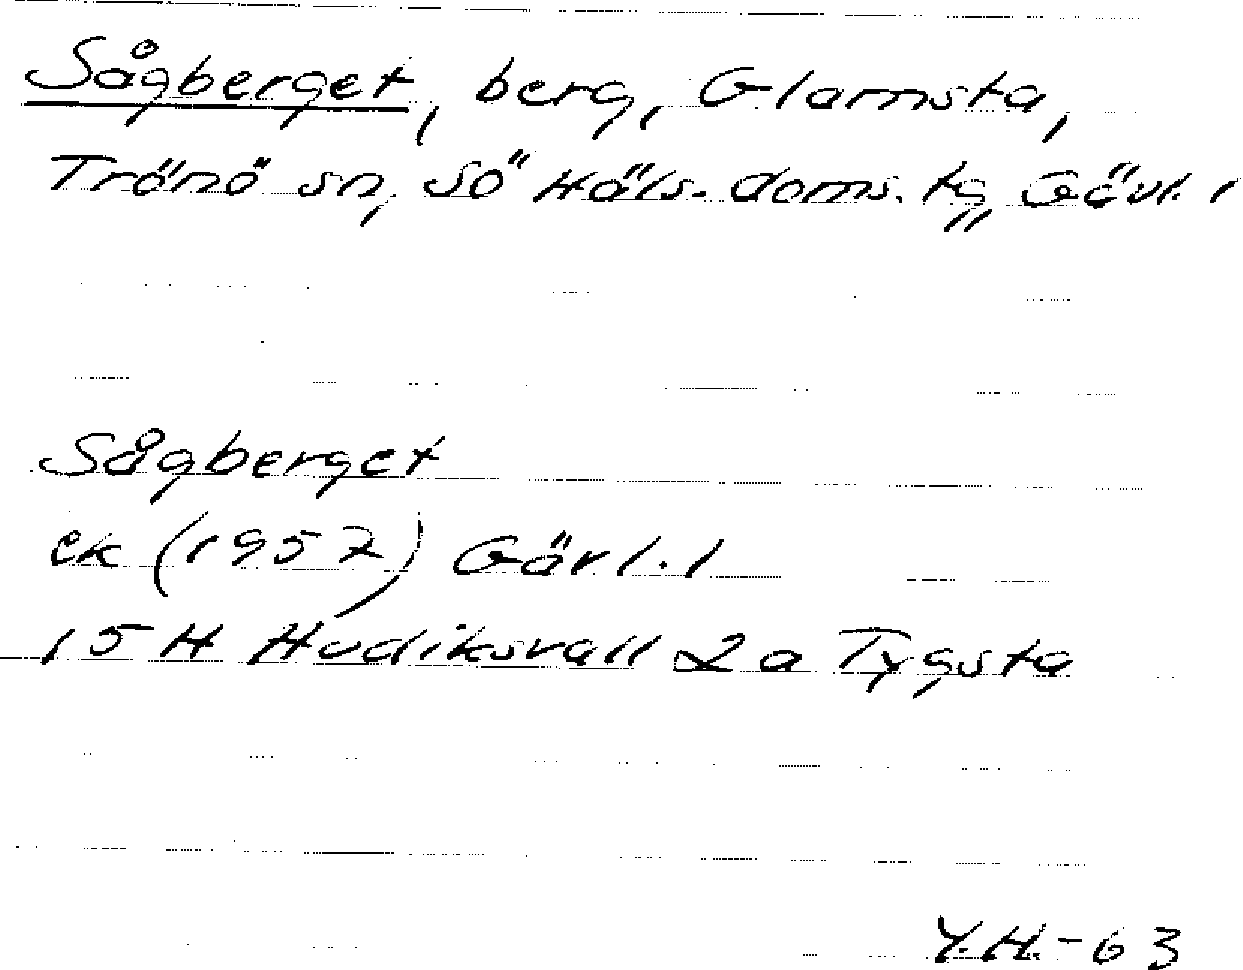 Sågberget, berg, Glamsta,
Trönö sn, Sö Häls. doms. tg, Gävl. l
Sågberget
ek (1957) Gävl. l
15H Hudiksvall 2a Tygsta
Y.H.-63